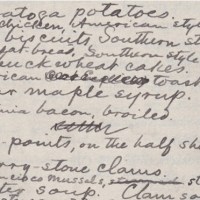 ratoga potatoes.
chicken, American style
biscuits, Southern st
eat-bread, Southern style
uckwheat cakes.
rican toast
r maple syrup.
nia bacon, broiled.
-points, on the half she
rry-stone clams.
cisco mussels,
ter soup. Clam so